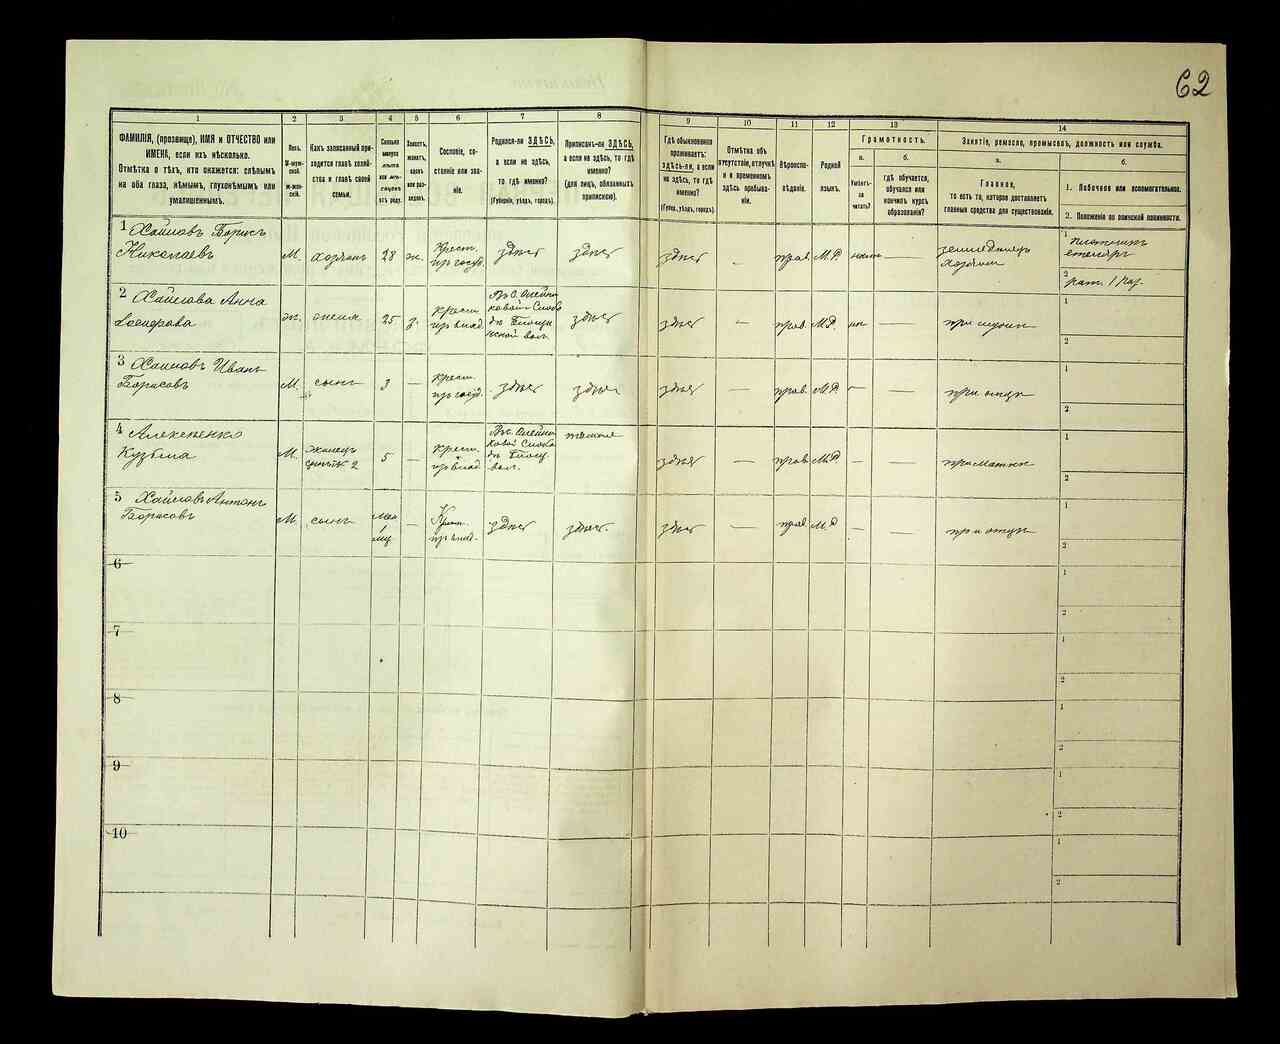 62
1
2
3
4
5
6
7
8
9
10
11
12
13
14
ФАМИЛІЯ, (прозвище), ИМЯ и ОТЧЕСТВО или
ИМЕНА, если ихъ нѣсколько.
Отмѣтка о тѣхъ, кто окажется: слѣпымъ
на оба глаза, нѣмымъ, глухонѣмымъ или
умалишеннымъ.
Полъ.
М-муж-
ской.
Ж-жен-
скій.
Какъ записанный при-
ходится главѣ хозяй-
ства и главѣ своей
семьи.
Сколько
минуло
лѣтъ
или мѣ-
сяцевъ
отъ роду.
Холостъ,
женатъ,
вдовъ
или раз-
веденъ.
Сословіе, со-
стояніе или зва-
ніе.
Родился-ли ЗДѢСЬ,
а если не здѣсь,
то гдѣ именно?
(Губернія, уѣздъ, городъ).
Приписанъ-ли ЗДѢСЬ,
а если не здѣсь, то гдѣ
именно?
(для лицъ, обязанныхъ
припискою).
Гдѣ обыкновенно
проживаетъ:
здѣсь-ли, а если
не здѣсь, то гдѣ
именно?
(Губер., уѣздъ, городъ).
Отмѣтка объ
отсутствіи, отлучкѣ
и о временномъ
здѣсь пребыва-
ніи.
Вѣроиспо-
вѣданіе.
Родной
языкъ.
Грамотность.
а.
Умѣетъ-
ли
читать?
б.
гдѣ обучается,
обучался или
кончилъ курсъ
образованія?
Занятіе, ремесло, промыселъ, должность или служба.
а.
Главное,
то есть то, которое доставляетъ
главныя средства для существованія.
б.
1. Побочное или вспомогательное.
2. Положеніе по воинской повинности.
1 Хайловъ Борисъ
Николаевъ
М. хозяинъ 28 ж.
Крест.
здѣсь здѣсь здѣсь — прав. М.Р. —
земледѣлецъ
хозяинъ
1
2
2 Хайлова Анна
25
крест.
здѣсь здѣсь — прав. М.Р. —
1
2
3 Хайловъ Иванъ
Борисовъ
М. сынъ 3 —
крест.
здѣсь здѣсь здѣсь — прав. М.Р. — —
при отцѣ
1
2
4
Кузьма
М. 5 —
крест.
здѣсь — прав М.Р. —
при матери
1
2
5 Хайловъ Антонъ
Борисовъ
М. сынъ —
здѣсь здѣсь. здѣсь — прав. М.Р —
при отцѣ
1
2
6
1
2
7
1
2
8
1
2
9
1
2
10
1
2